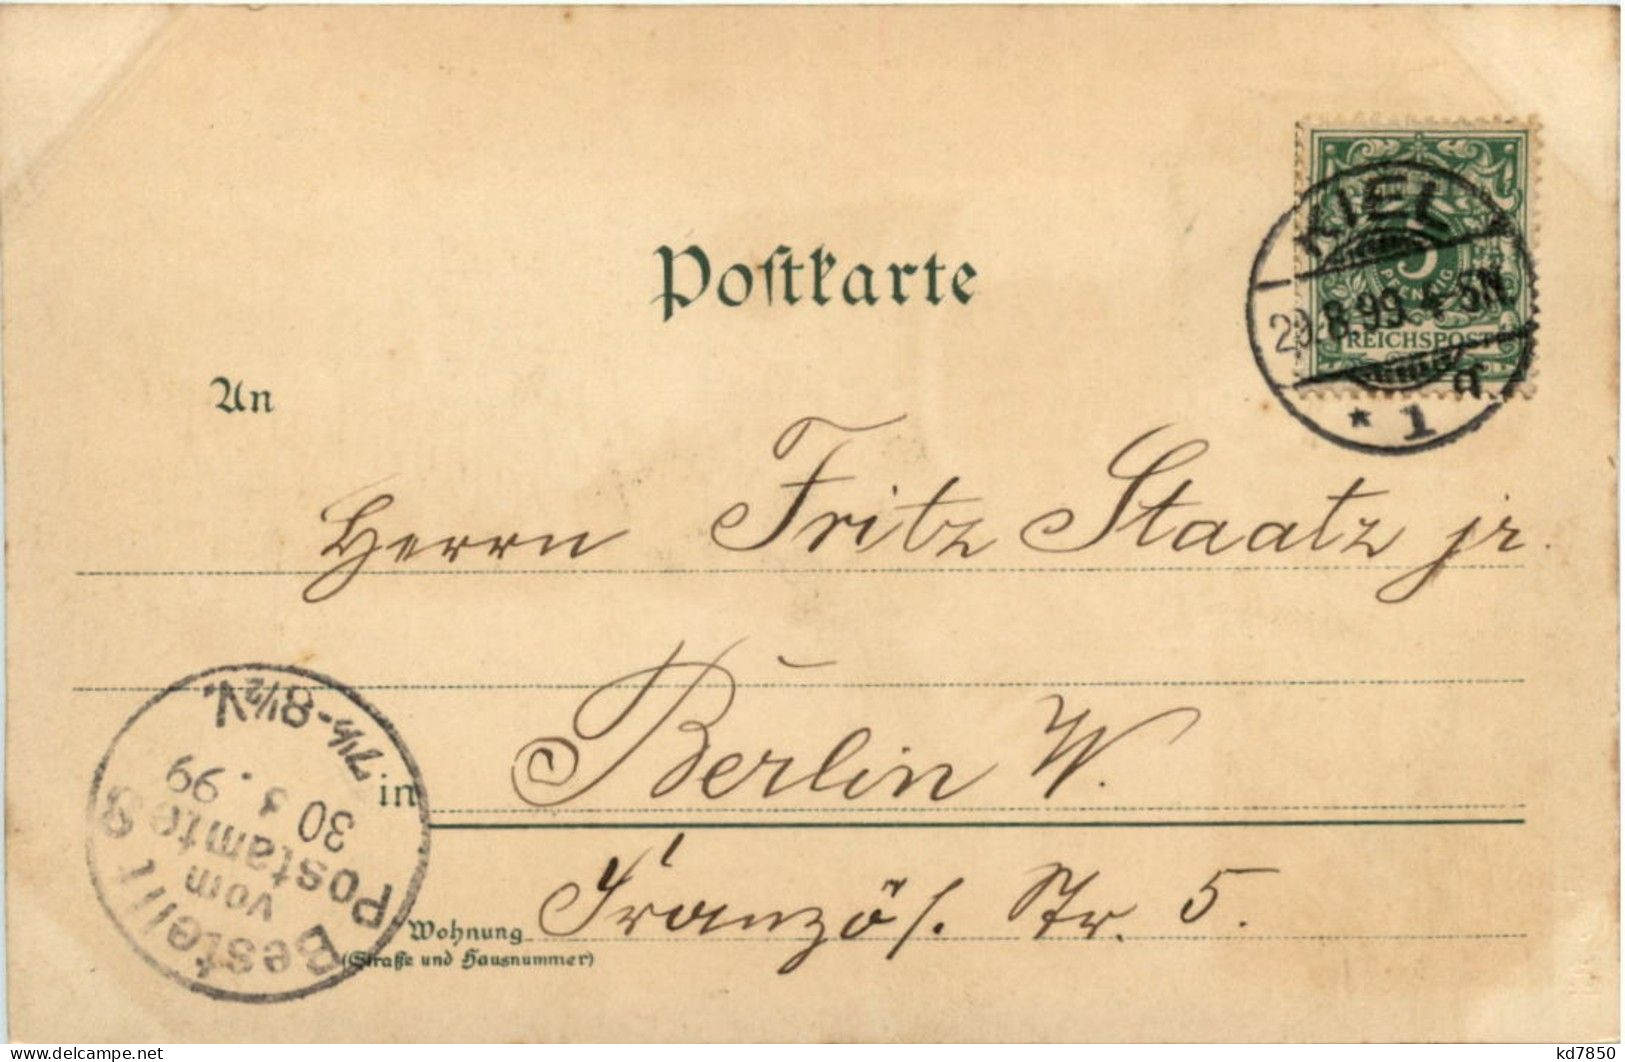 Postkarte
KIEL
29.8.99. 4-5N.
* 1 d
5
PFENNIG
REICHSPOST
An
Herrn Fritz Staatz jr.
in Berlin W.
Wohnung Französ. Str. 5.
(Straße und Hausnummer)
Bestellt
vom
Postamte 8
30 8. 99
7¼-8½V.
kd7850